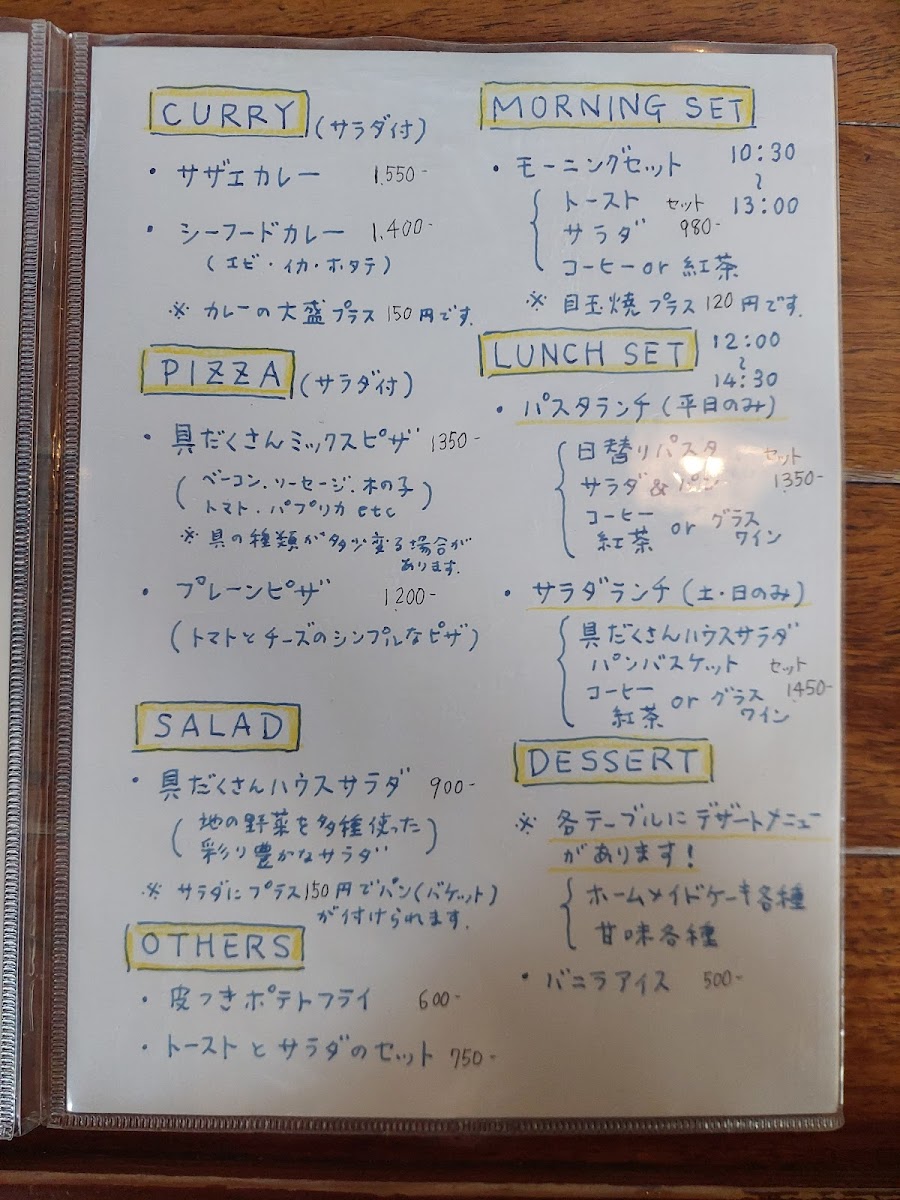 CURRY (サラダ付)
・サザエカレー 1,550-
・シーフードカレー 1,400-
(エビ・イカ・ホタテ)
※ カレーの大盛プラス150円です.
PIZZA (サラダ付)
・具だくさんミックスピザ 1350-
(ベーコン.ソーセージ.木の子
トマト.パプリカ etc)
※ 具の種類が多少変る場合が
あります.
・プレーンピザ 1200-
(トマトとチーズのシンプルなピザ)
SALAD
・具だくさんハウスサラダ 900-
(地の野菜を多種使った
彩り豊かなサラダ)
※ サラダにプラス150円でパン(バケット)
が付けられます.
OTHERS
・皮つきポテトフライ 600-
・トーストとサラダのセット 750-
MORNING SET
・モーニングセット 10:30
〜
トースト セット 13:00
サラダ 980-
コーヒー or 紅茶
※ 目玉焼プラス120円です.
LUNCH SET 12:00
〜
14:30
・パスタランチ(平日のみ)
日替りパスタ セット
サラダ & パン 1350-
コーヒー or グラス
紅茶 ワイン
・サラダランチ(土・日のみ)
具だくさんハウスサラダ
パンバスケット セット
コーヒー or グラス 1450-
紅茶 ワイン
DESSERT
※ 各テーブルにデザートメニュー
があります!
ホームメイドケーキ各種
甘味各種
・バニラアイス 500-